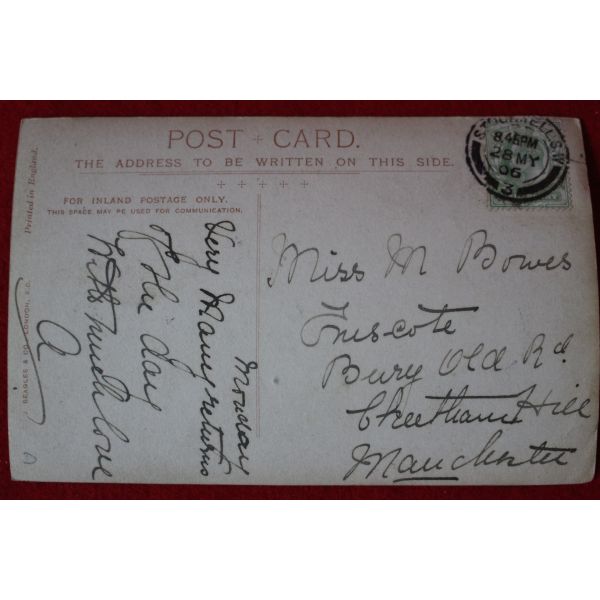 POST + CARD.
THE ADDRESS TO BE WRITTEN ON THIS SIDE.
FOR INLAND POSTAGE ONLY.
THIS SPACE MAY BE USED FOR COMMUNICATION.
Printed in England.
BEAGLES & CO., LONDON, E.C.
8.45PM
28 MY
06
3
Monday
Very Many returns
of the day
With much love
A
Miss M Bowes
Bury Old Rd
Cheetham Hill
Manchester